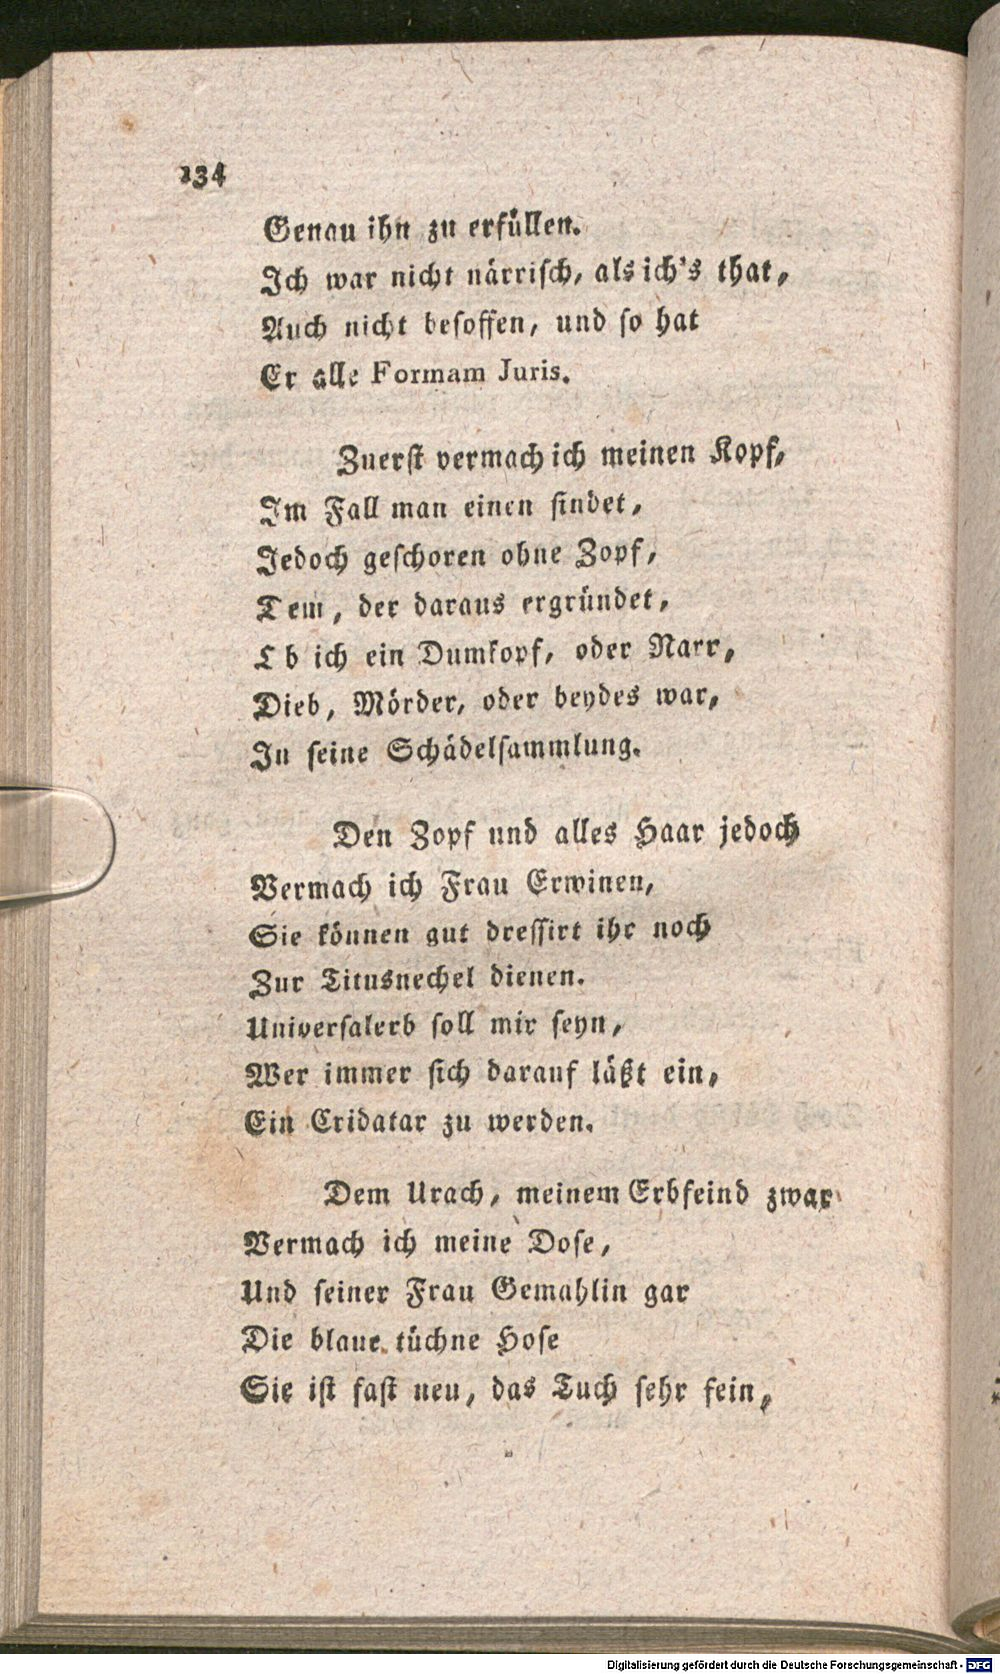 134
Genau ihn zu erfüllen.
Ich war nicht närrisch, als ich's that,
Auch nicht besoffen, und so hat
Er alle Formam Juris.
Zuerst vermach ich meinen Kopf,
Im Fall man einen findet,
Jedoch geschoren ohne Zopf,
Dem, der daraus ergründet,
Ob ich ein Dumkopf, oder Narr,
Dieb, Mörder, oder beydes war,
In seine Schädelsammlung.
Den Zopf und alles Haar jedoch
Vermach ich Frau Erwinen,
Sie können gut dressirt ihr noch
Zur Titusnechel dienen.
Universalerb soll mir seyn,
Wer immer sich darauf läßt ein,
Ein Cridatar zu werden.
Dem Urach, meinem Erbfeind zwar
Vermach ich meine Dose,
Und seiner Frau Gemahlin gar
Die blaue tüchne Hose
Sie ist fast neu, das Tuch sehr fein,
Digitalisierung gefördert durch die Deutsche Forschungsgemeinschaft - DFG